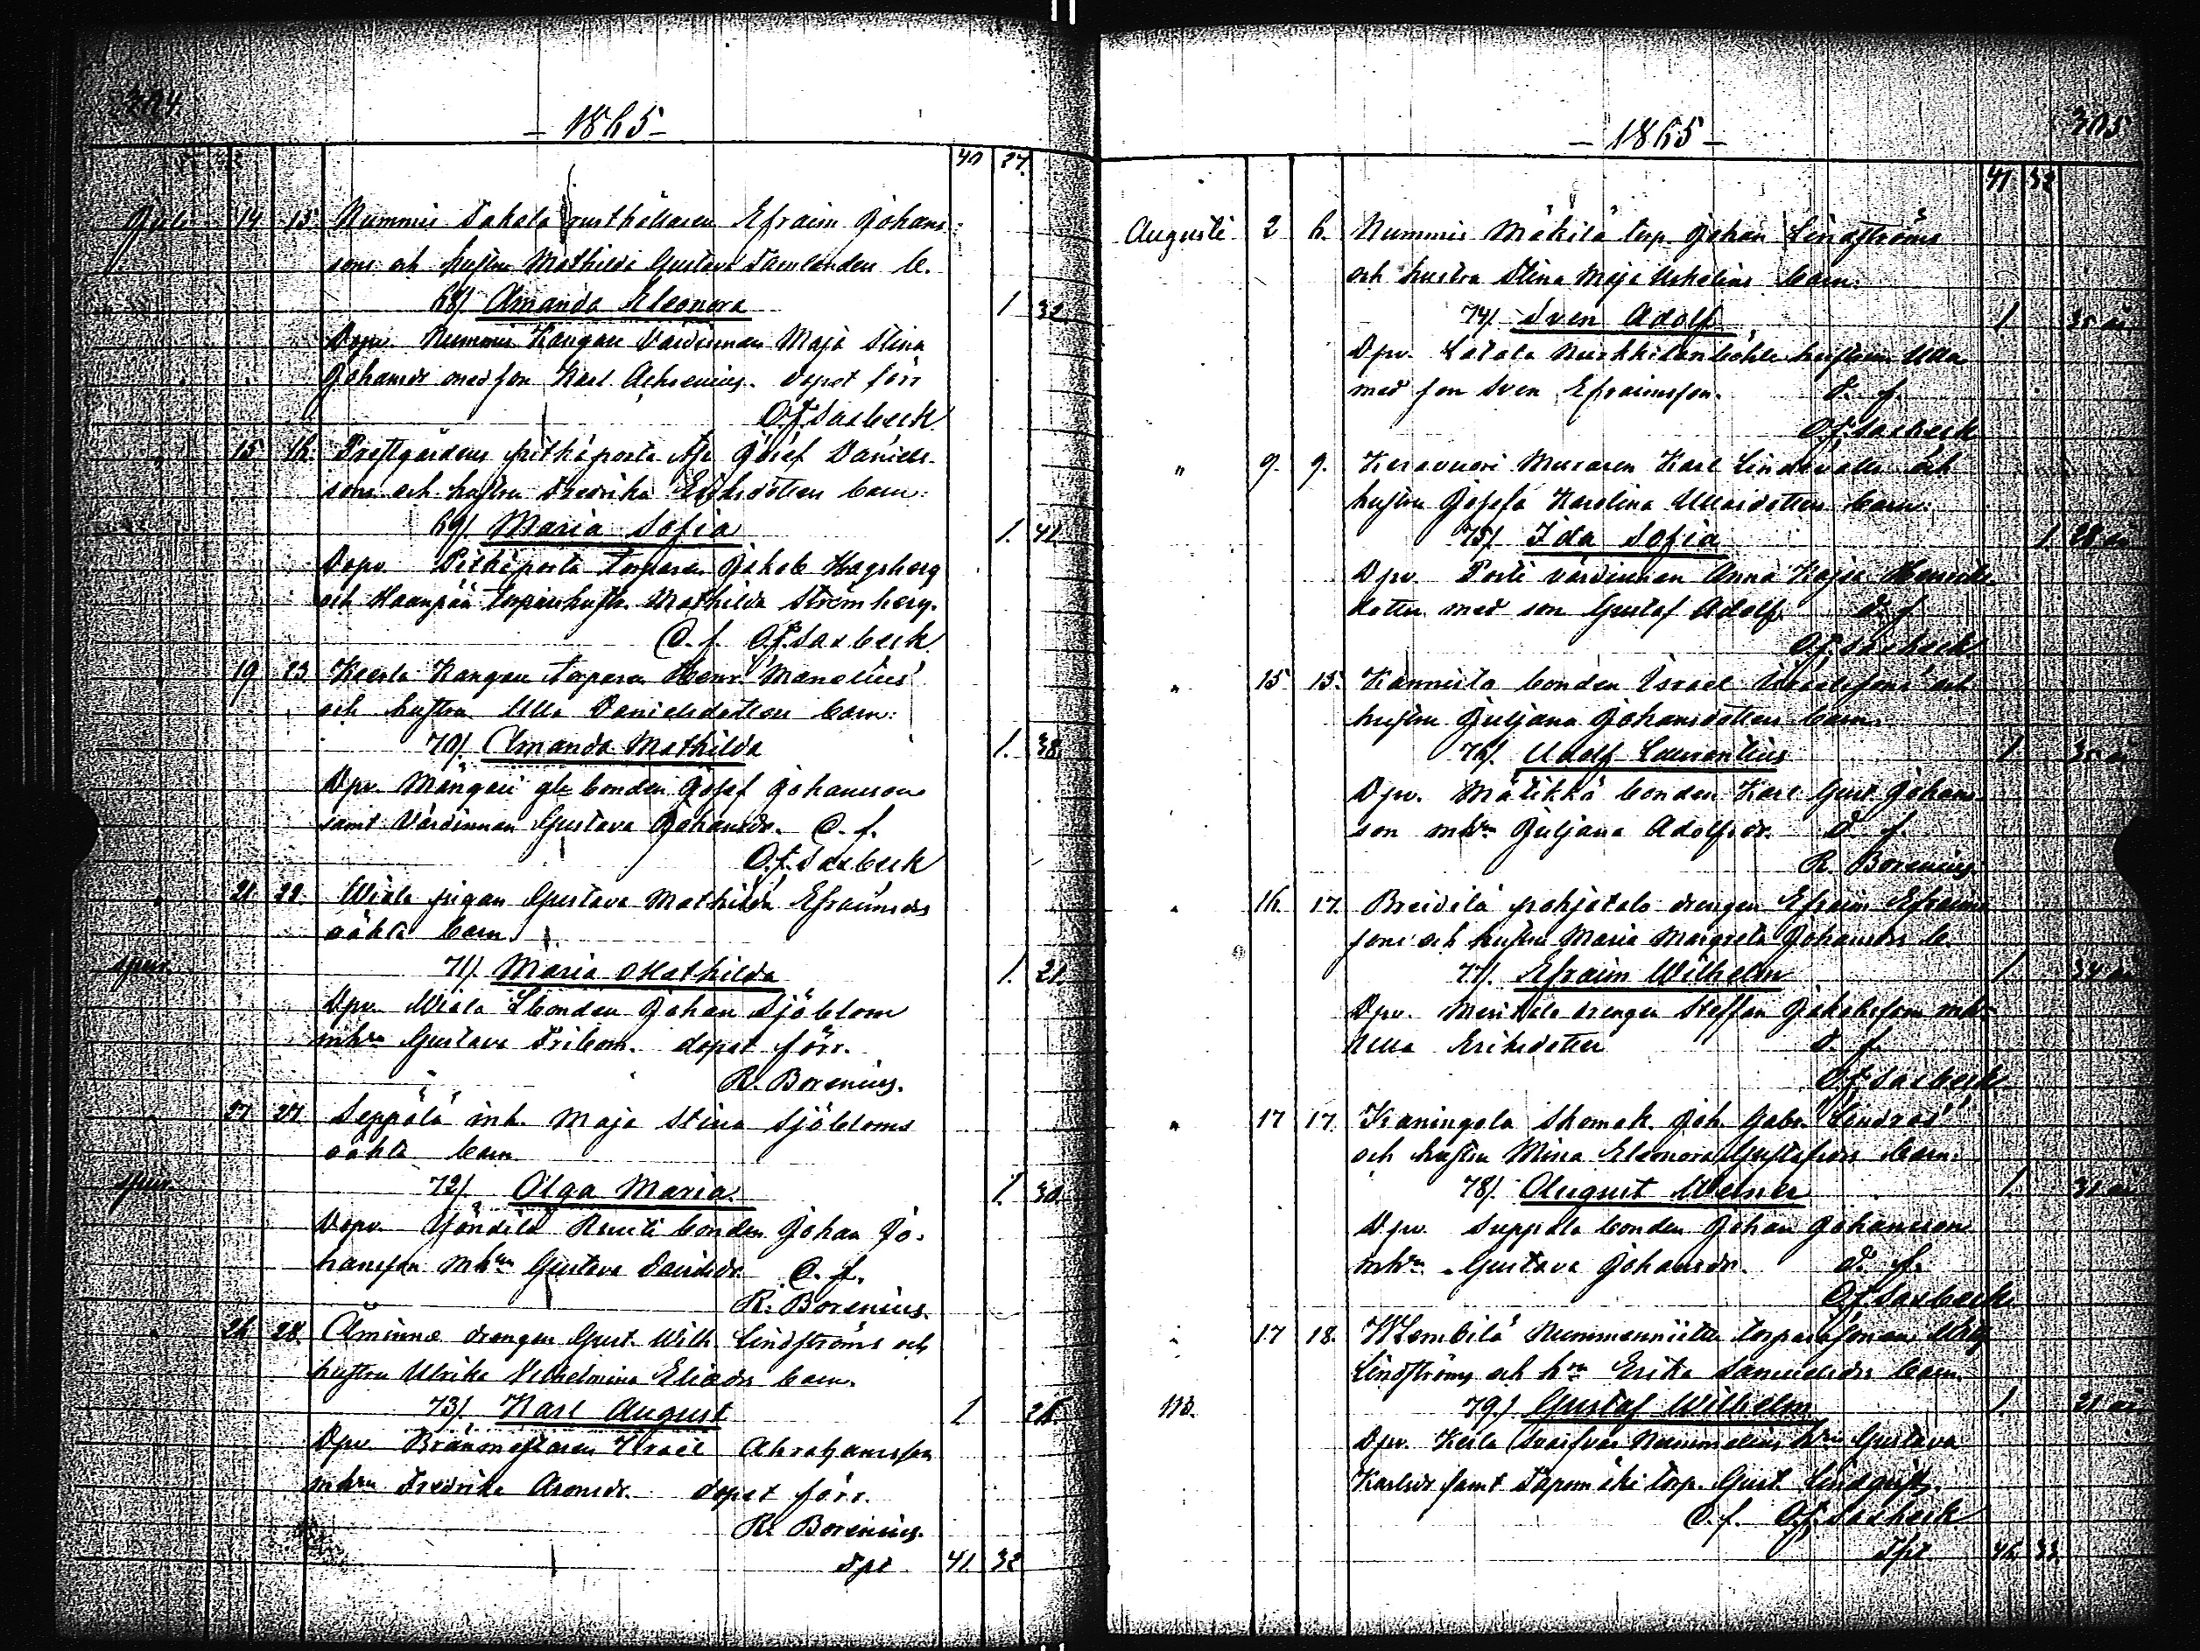 304
- 1865 -
40 27.
Juli 14 15 Nummis Takala rusthållaren Efraim Johans
sons och hustru Mathilda Gustava Tamlanders b.
68/. Amanda Eleonora 1 32
Dopv. Nummis Kangare Värdinnan Maja Stina
Johansdr med son Karl Achrenius. dopet förr
O.f. Saxbeck
" 15 16. Prestgårdens pitkäporta Josef Daniels-
sons och hustru Fredrika Eriksdotters barn:
69/. Maria Sofia 1. 41.
Dopv. Pitkäporta Torparen Jakob Hagsberg
och Haanpää torparehustr. Mathilda Strömberg.
D. f. O.f. Saxbeck
" 19 23 Keerla Kangare torparen Henr. Manelius'
och hustru Ulla Danielsdotters barn:
70/. Amanda Mathilda 1. 38.
Dpv. Mängeri gl. bonden Josef Johansson
samt Värdinnan Gustava Johansdr. D. f.
O.f. Saxbeck
" 21. 22. Wiala pigan Gustava Mathilda Efraimsdrs
oäkta barn.
spur. 71/. Maria Mathilda 1. 21.
Dpv. Wiala bonden Johan Sjöblom
mhn Gustava Fribom. dopet förr.
R. Borenius.
" 27. 27. Seppälä inh. Maja Stina Sjöbloms
oäkta barn.
spur. 72/. Olga Maria. 1. 30.
Dopv. Yöndilä Ruuti bonden Johan Jo-
hansson mhn Gustava Davidsdr. D. f.
R. Borenius.
" 26 28. Äminne drängen Gust. Wilh. Lindströms och
hustru Ulrika Vilhelmina Eliædrs barn.
73/. Karl August 1 26.
Dpv. Israel Abrahamsson
mhn Fredrika Aronsdr. dopet förr.
R. Borenius.
Tpt 41. 32
305
- 1865 -
41 32
Augusti 2 6. Nummis Mäkilä torp. Johan Lindströms
och hustru Stina Maja Uskelins barn.
74/. Sven Adolf 1. 35 år
Dpv. Latala hustrun Ulla
med son Sven Efraimsson. D. f.
O.f. Saxbeck
" 9. 9. Keravuori Muraren Karl Lindevalls och
hustru Josefa Karolina Ullasdotters barn:
75/. Ida Sofia 1. 28 år
Dpv. Porti värdinnan Anna Kajsa Henriks
dotter med son Gustaf Adolf. D. f
O.f. Saxbeck
" 15 15. Kannisto bonden Israel Israelssons och
hustru Juljana Johansdotters barn.
76/. Adolf Laurentius 1. 35 år
Dpv. Mälikkä bonden Karl Gust. Johans-
son mhn Juljana Adolfsdr. D. f.
R. Borenius
" 16. 17. Breidilä pohjatalo drengen Efraim Efraims
sons och hustru Maria Margreta Johansdrs b.
77/. Efraim Wilhelm 1 34 år
Dpv. drengen Steffan Jakobsson mhn
Ulla Eriksdotter D. f.
O.f. Saxbeck
" 17 17. Kaningola Skomak. Joh. Gabr. Lindros'
och hustru Mina Eleonora Gustafsdrs barn.
78/. August Werner 1. 31 år
Dpv. Seppälä bonden Johan Johansson
mhn. Gustava Johansdr. D. f.
O.f. Saxbeck.
" 17 18. WLembilä Nummenniittu torpare
Lindströms och hru Erika Samuelsdrs barn.
NB. 79./. Gustaf Wilhelm 1. 21 år
Dpv. Keila Svarfvar Nummelins hru Gustava
Karlsdr samt Tapomäki torp. Gust. Lindqvist.
D. f. O.f. Saxbeck
Tpt 46. 33.